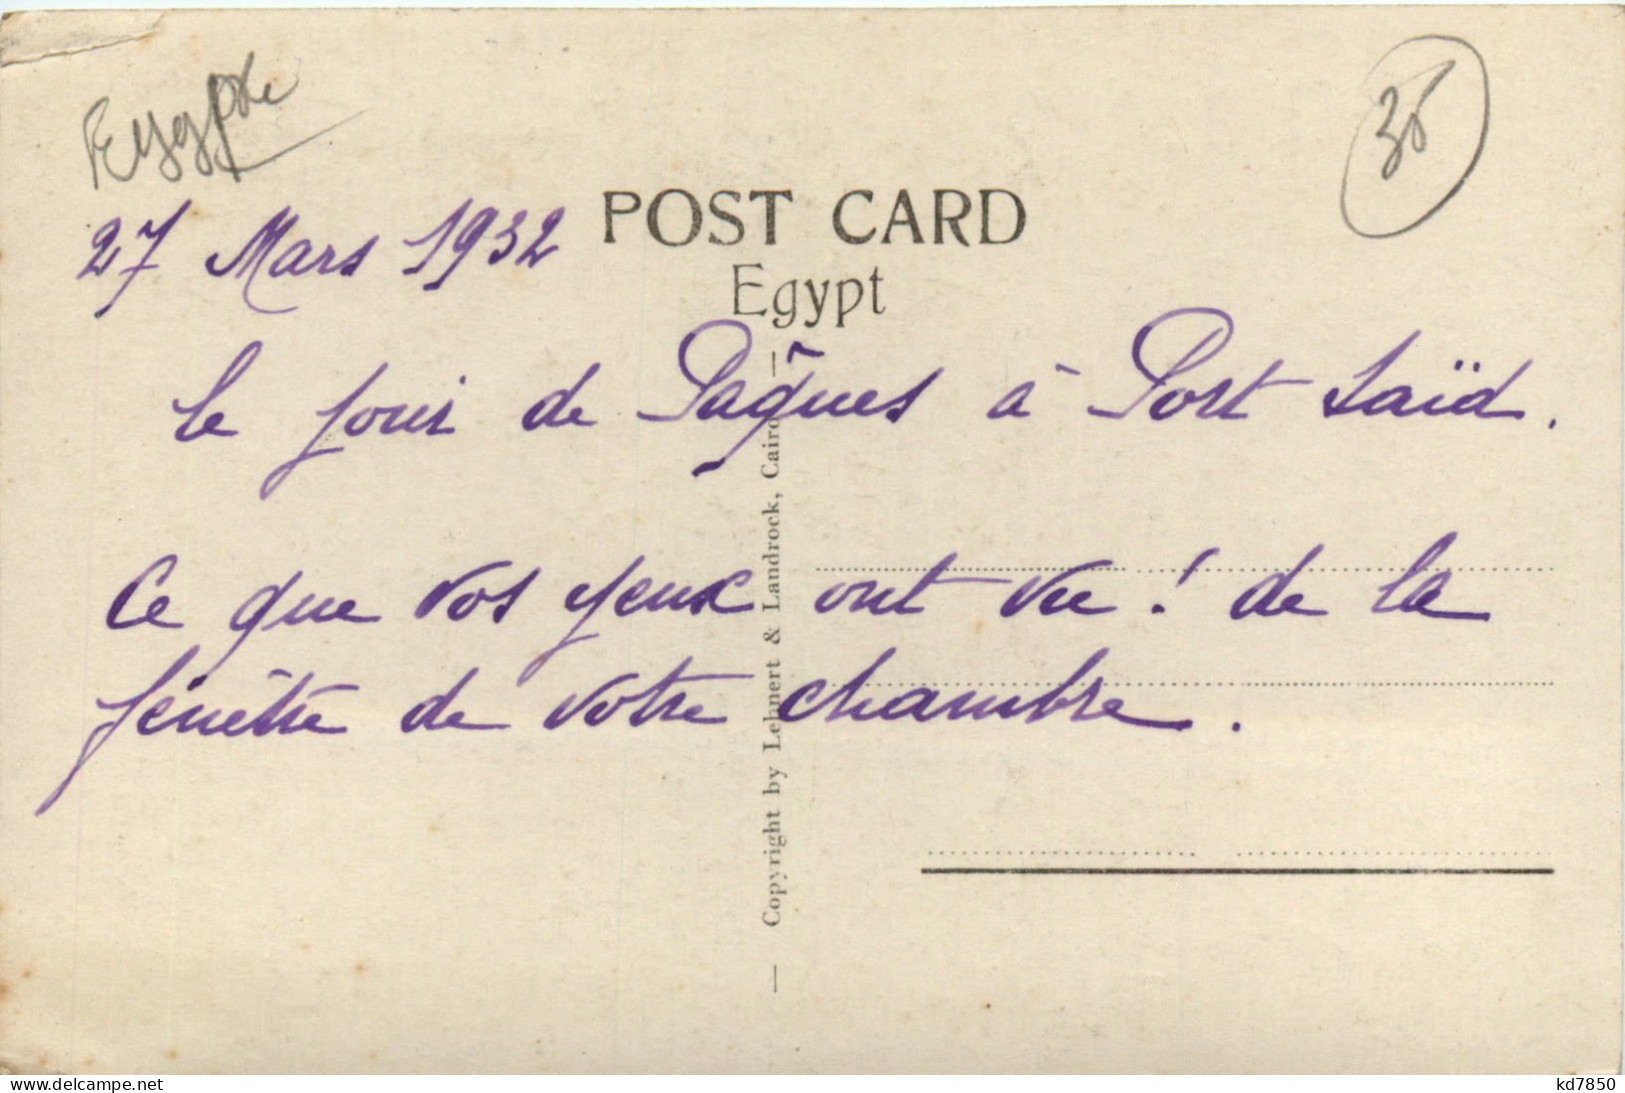 Egypte
35
27 Mars 1932
POST CARD
Egypt
le jour de Pâques à Port Saïd.
Ce que vos yeux ont vu ! de la
fenêtre de votre chambre.
— Copyright by Lehnert & Landrock, Cairo —
www.delcampe.net
kd7850